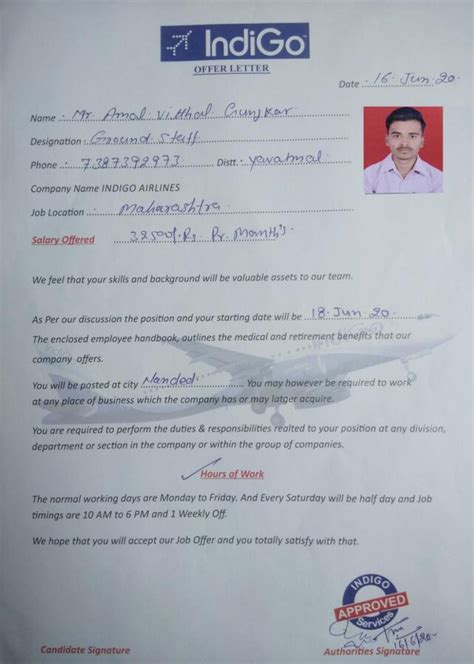 IndiGo
OFFER LETTER
Date 16 Jun 20
Name : Mr Amol Vitthal Gunjkar
Designation : Ground Staff
Phone : 7387392973 Distt : Yavatmal
Company Name INDIGO AIRLINES
Job Location : Maharashtra
Salary Offered 32500/. Rs. Pr. Manth's
We feel that your skills and background will be valuable assets to our team.
As Per our discussion the position and your starting date will be 18 Jun 20
The enclosed employee handbook, outlines the medical and retirement benefits that our
company offers.
You will be posted at city Nanded You may however be required to work
at any place of business which the company has or may latger acquire.
You are required to perform the duties & responsibilities realted to your position at any division,
department or section in the company or within the group of companies.
Hours of Work
The normal working days are Monday to Friday. And Every Saturday will be half day and Job
timings are 10 AM to 6 PM and 1 Weekly Off.
We hope that you will accept our Job Offer and you totally satisfy with that.
INDIGO
APPROVED
Services
16/6/20
Candidate Signature Authorities Signature